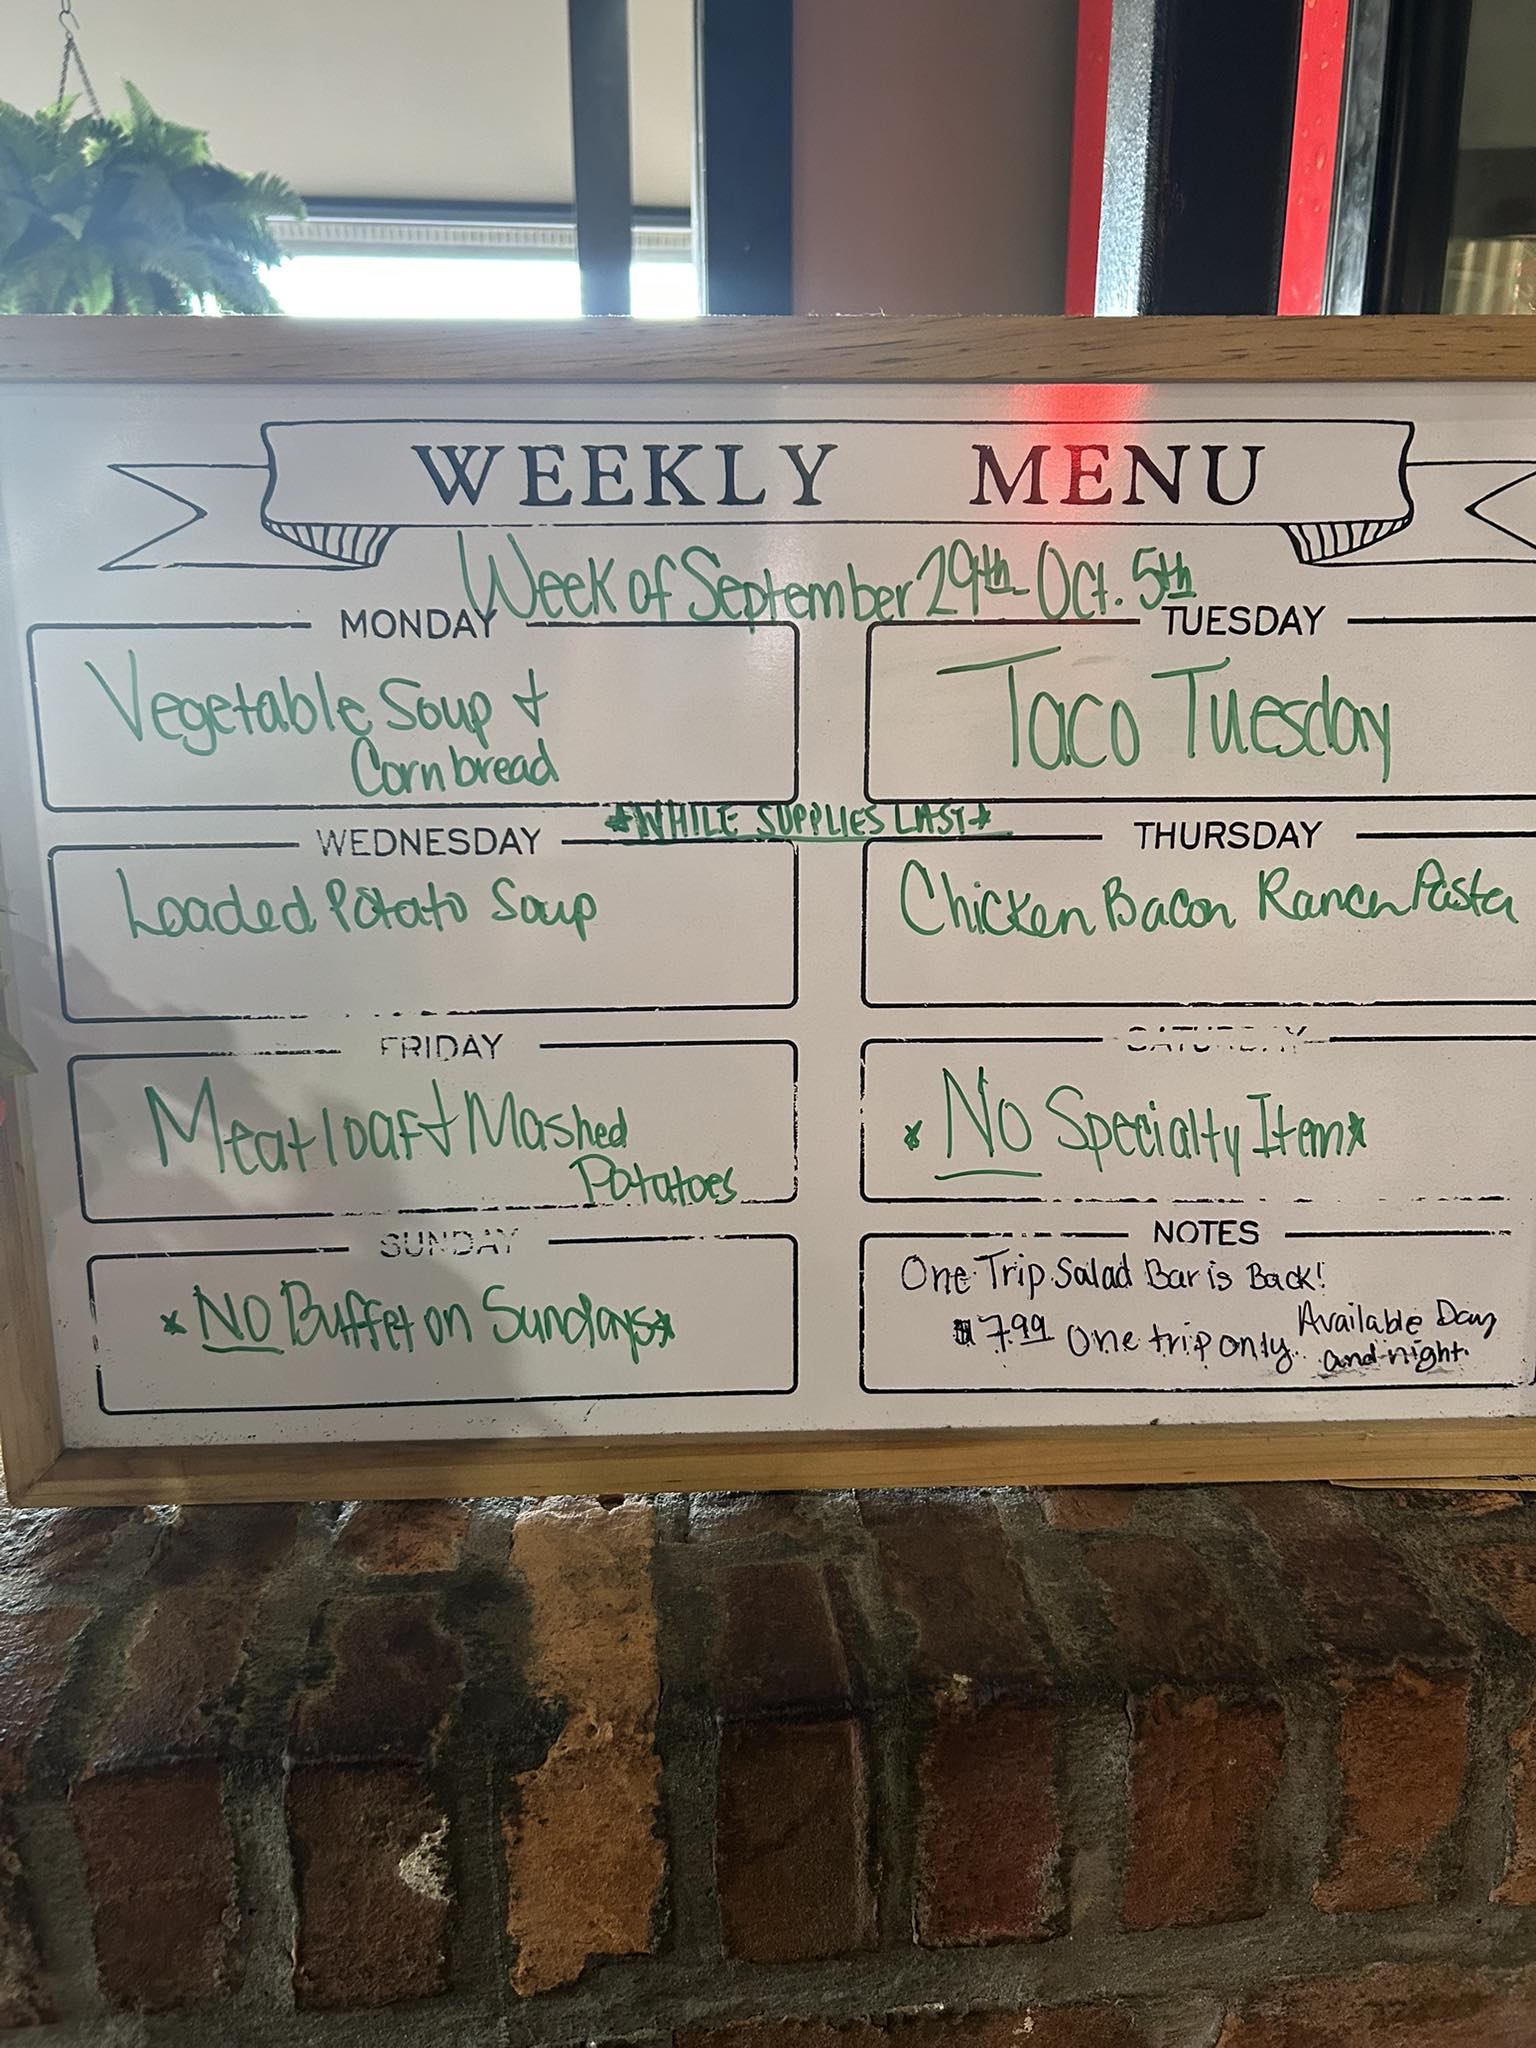 WEEKLY MENU
Week of September 29th - Oct. 5th
MONDAY
Vegetable Soup &
Cornbread
TUESDAY
Taco Tuesday
*WHILE SUPPLIES LAST*
WEDNESDAY
Loaded Potato Soup
THURSDAY
Chicken Bacon Ranch Pasta
FRIDAY
Meatloaf & Mashed
Potatoes
SATURDAY
* NO Specialty Item*
SUNDAY
* NO Buffet on Sundays*
NOTES
One Trip Salad Bar is Back!
$7.99 One trip only. Available Day
and night.